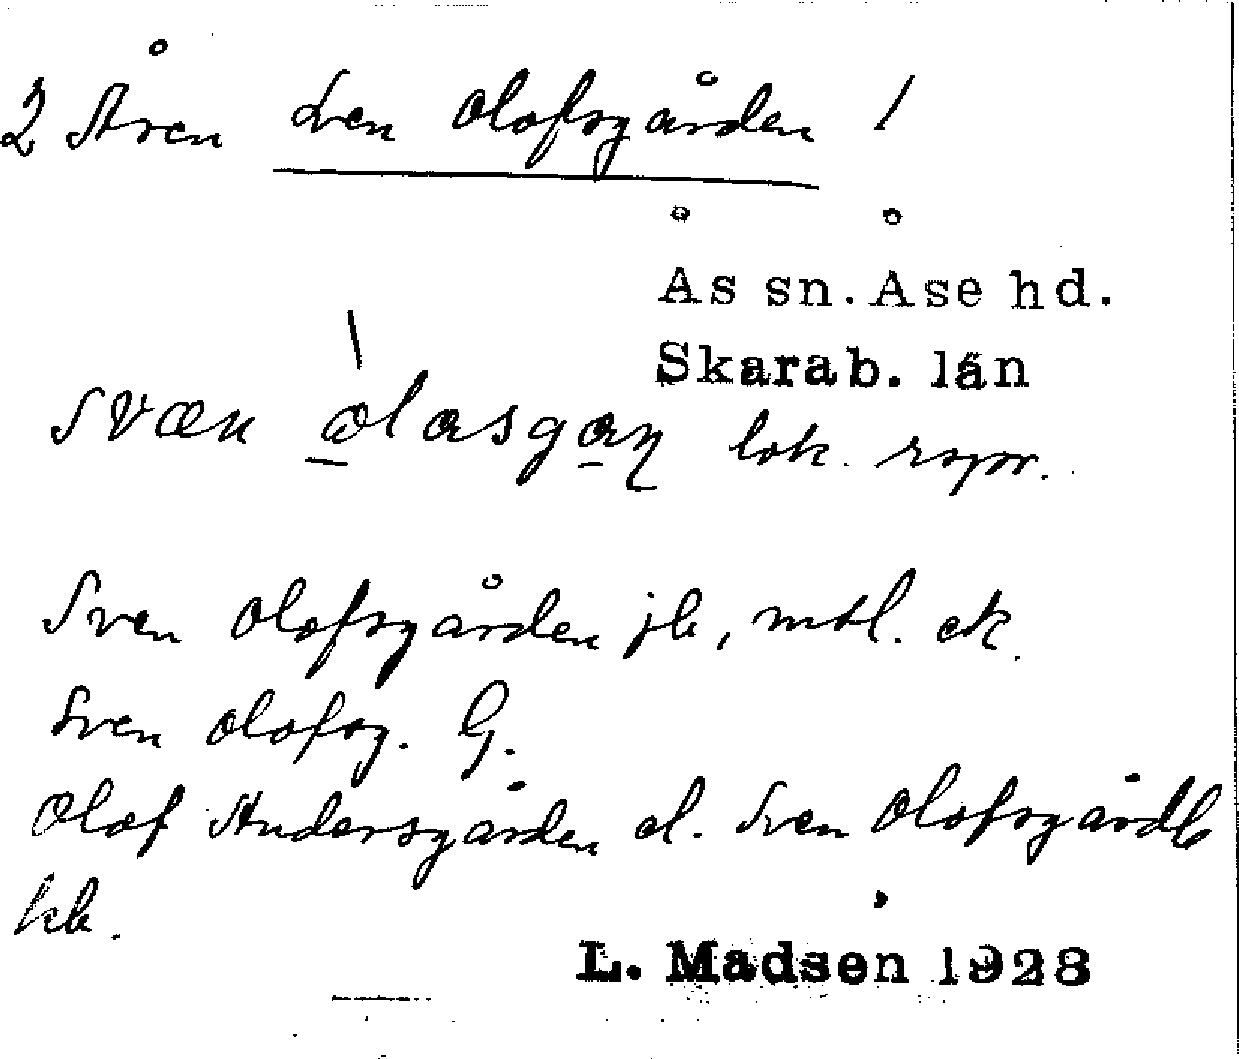 2 Åren Sven Olofsgården /
Ås sn. Åse hd.
Skarab. län
svæn lok. rspr.
Sven Olofsgården jb, mtl. ek.
Sven Olofsg. G.
Olof Andersgården el. Sven Olofsgårdh
kb.
L. Madsen 1928